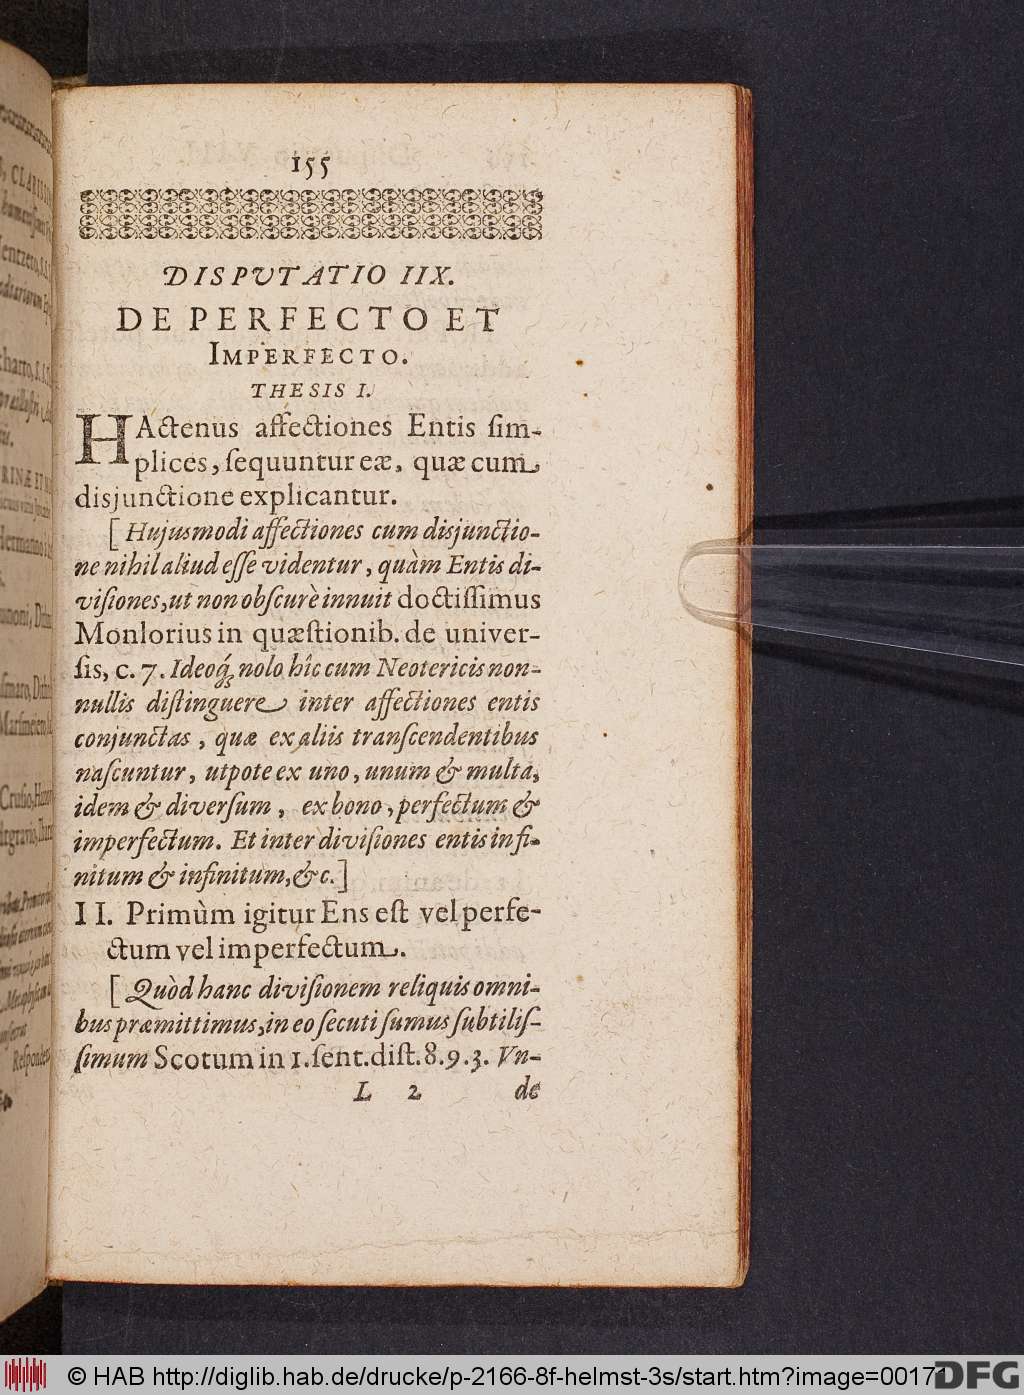 155
DISPVTATIO IIX.
DE PERFECTO ET
IMPERFECTO.
THESIS I.
HActenus affectiones Entis ſim-
plices, ſequuntur eæ, quæ cum
disjunctione explicantur.
[ Hujusmodi affectiones cum disjunctio-
ne nihil aliud eſſe videntur, quàm Entis di-
viſiones, ut non obſcurè innuit doctiſſimus
Monlorius in quæſtionib. de univer-
ſis, c. 7. Ideoq́ꝫ nolo hîc cum Neotericis non-
nullis diſtinguere inter affectiones entis
conjunctas, quæ ex aliis tranſcendentibus
naſcuntur, utpote ex uno, unum & multa,
idem & diverſum, ex bono, perfectum &
imperfectum. Et inter diviſiones entis infi-
nitum & infinitum, &c.]
II. Primùm igitur Ens eſt vel perfe-
ctum vel imperfectum.
[ Quòd hanc diviſionem reliquis omni-
bus præmittimus, in eo ſecuti ſumus ſubtiliſ-
ſimum Scotum in 1. ſent. diſt. 8. 9. 3. Vn-
L 2 de
© HAB http://diglib.hab.de/drucke/p-2166-8f-helmst-3s/start.htm?image=00171
DFG